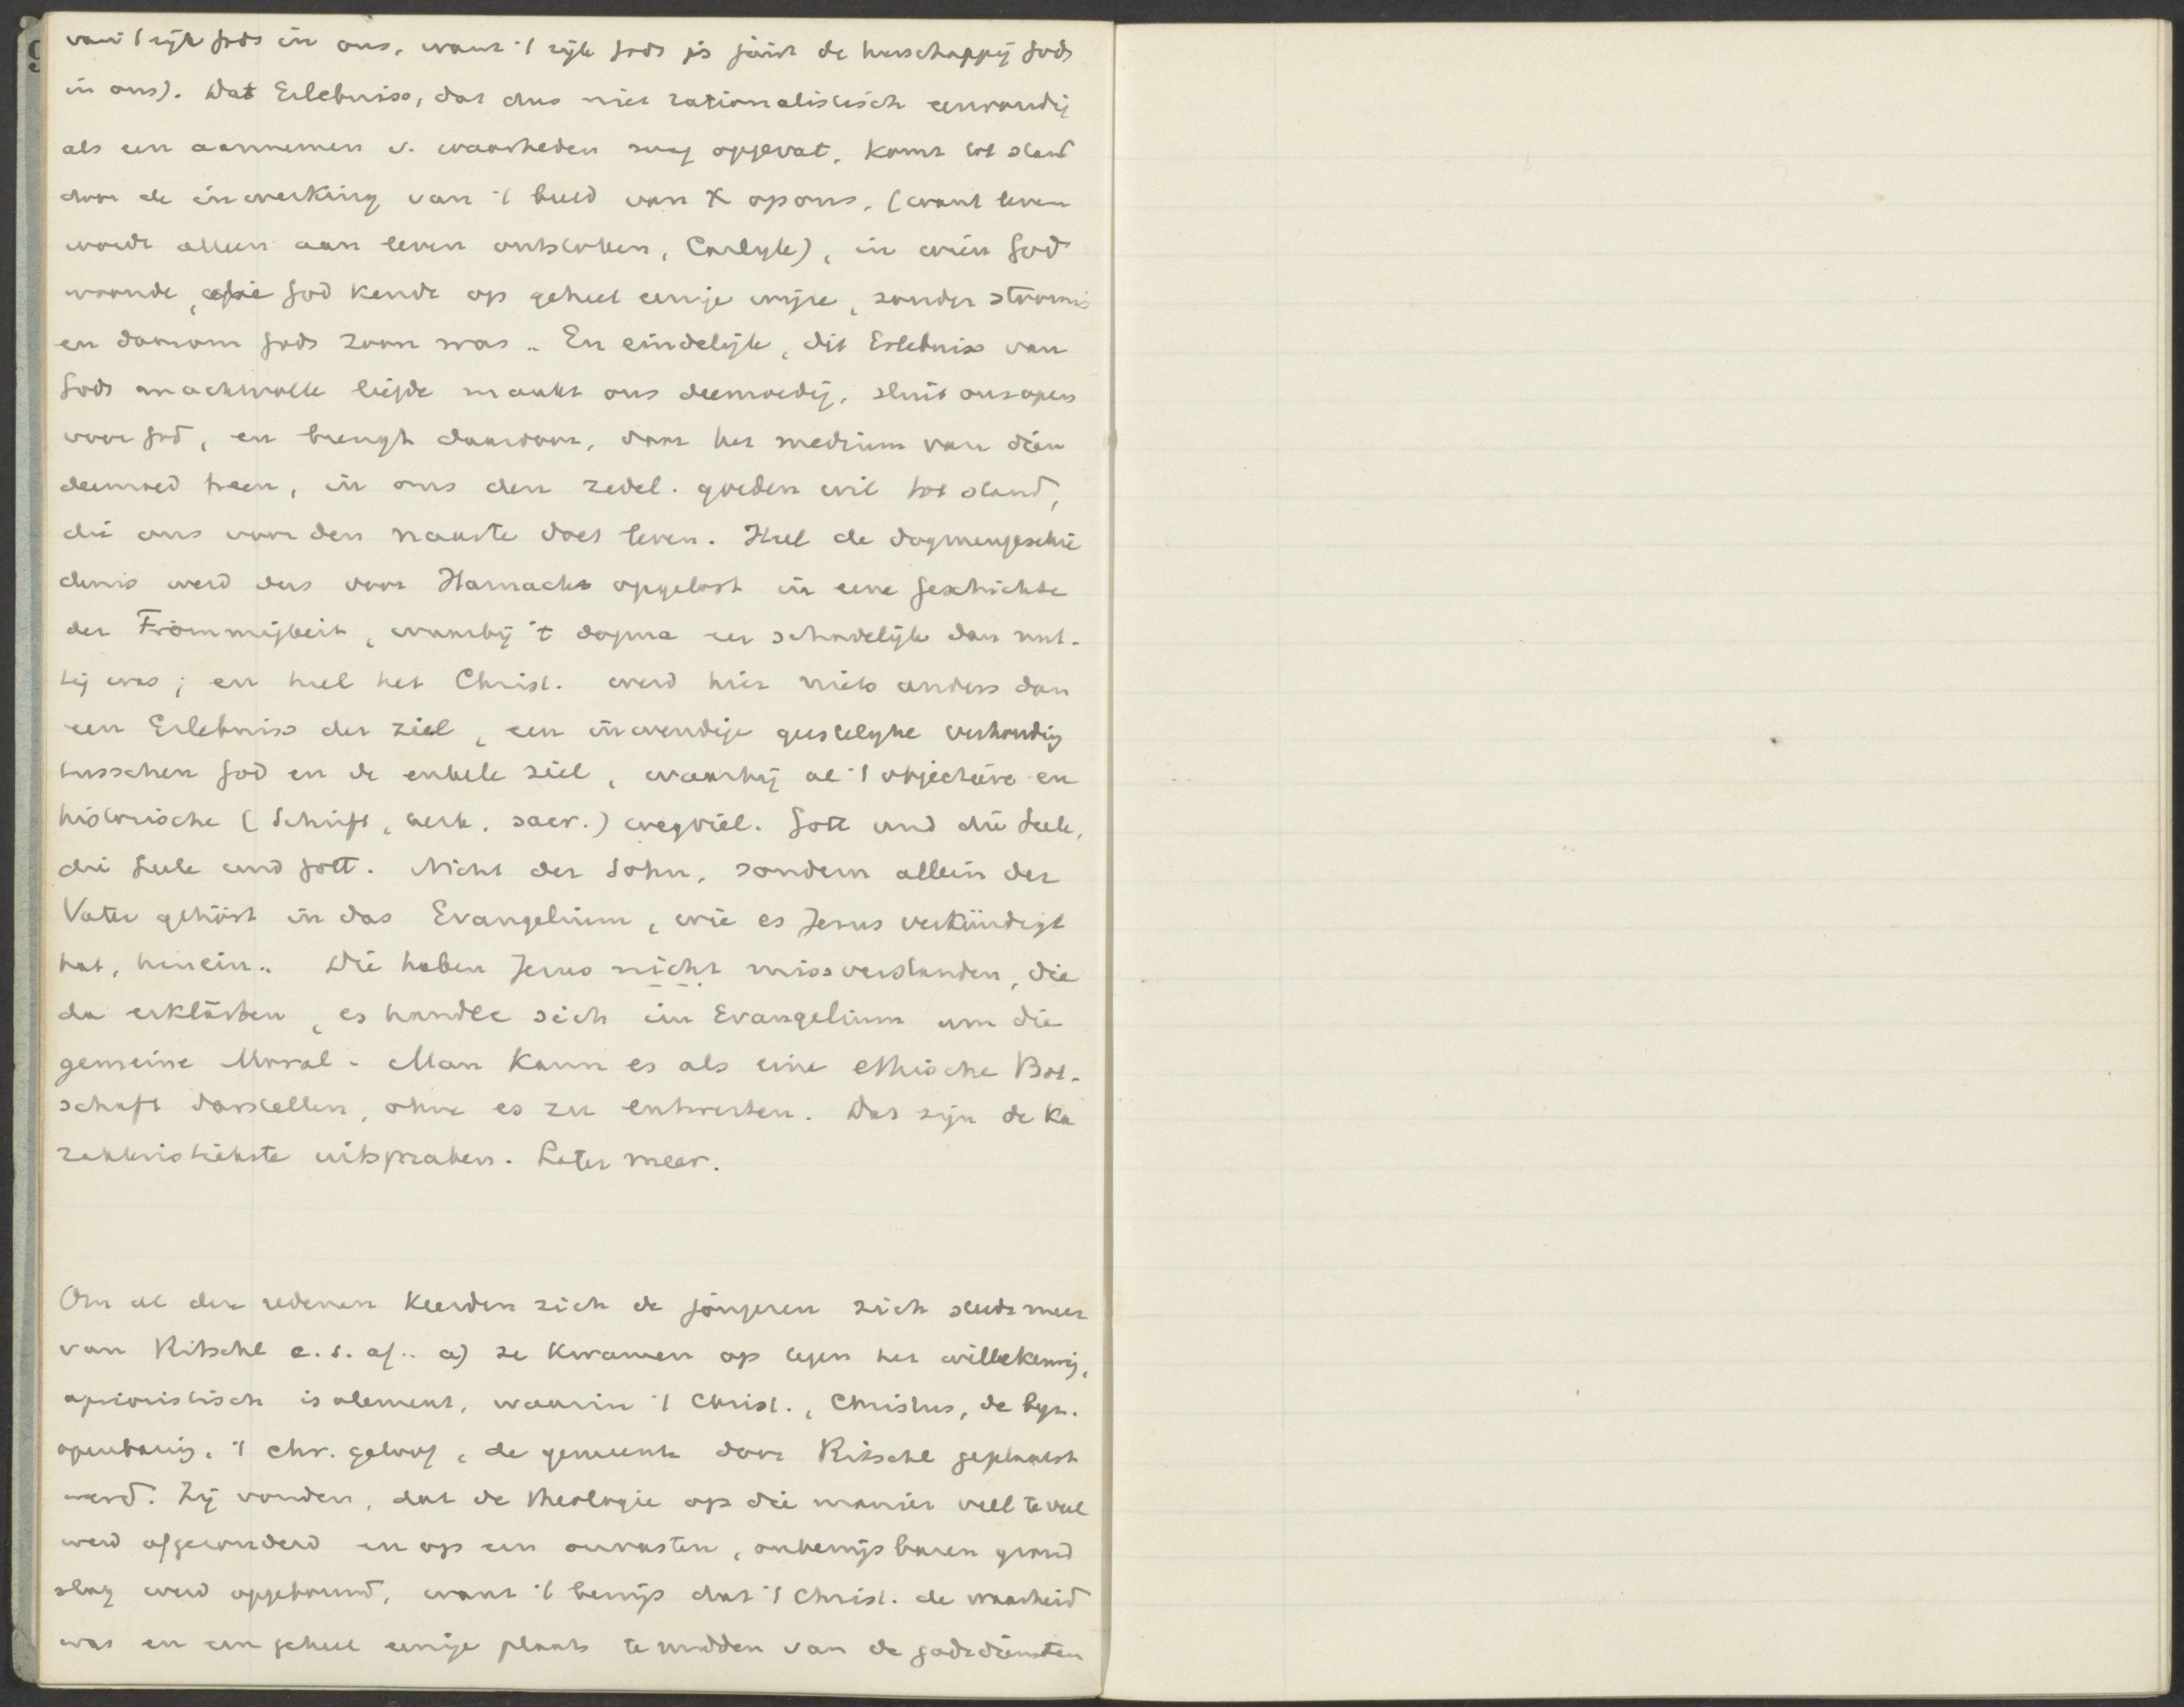 van 't rijk Gods in ons, want 't rijk Gods is juist de heerschappij Gods
in ons). Dat Erlebniss, dat dus niet rationalistisch eenvoudig
als een aannemen v. waarheden mag opgevat, komt tot stand
door de inwerking van 't beeld van X op ons, (want leven
wordt alleen aan leven ontstoken, Carlyle), in wien God
woonde, die God kende op geheel eenige wijze, zonder stoornis
en daarom Gods zoon was.. En eindelijk, dit Erlebniss van
Gods machtvolle liefde maakt ons deemoedig, sluit ons open
voor God, en brengt daardoor, door het medium van dien
deemoed heen, in ons den zedel. goeden wil tot stand,
die ons voor den naaste doet leven. Heel de dogmengeschie
denis werd dus voor Harnack opgelost in eene Geschichte
der Frömmigkeit, waarbij 't dogma eer schadelijk dan nut-
tig was; en heel het Christ. werd hier niets anders dan
een Erlebniss der ziel, een inwendige geestelyke verhoudig
tusschen God en de enkele ziel, waarbij al 't objectieve en
historische (Schrift, kerk, sacr.) wegviel. Gott und die Seele,
die Seele und Gott. Nicht der Sohn, sondern allein der
Vater gehört in das Evangelium, wie es Jesus verkündigt
hat, hinein.. Die haben Jesus nicht missverstanden, die
da erklärten, es handle sich im Evangelium um die
gemeine Moral - Man kann es als eine ethische Bot-
schaft darstellen, ohne es zu entwerten. Dat zijn de ka
rakteristiekste uitspraken. Later meer.
Om al deze redenen keerden zich de jongeren zich steeds meer
van Ritschl c.s. af.. a) ze kwamen op tegen het willekeurig,
aprioristisch isolement, waarin 't Christ., Christus, de byz.
openbaring, 't chr. geloof, de gemeente door Ritschl geplaatst
werd. Zij vonden, dat de theologie op die manier veel te veel
werd afgezonderd en op een onvasten, onbewijsbaren grond
slag werd opgebouwd, want 't bewijs dat 't Christ. de waarheid
was en een geheel eenige plaats te midden van de godsdiensten